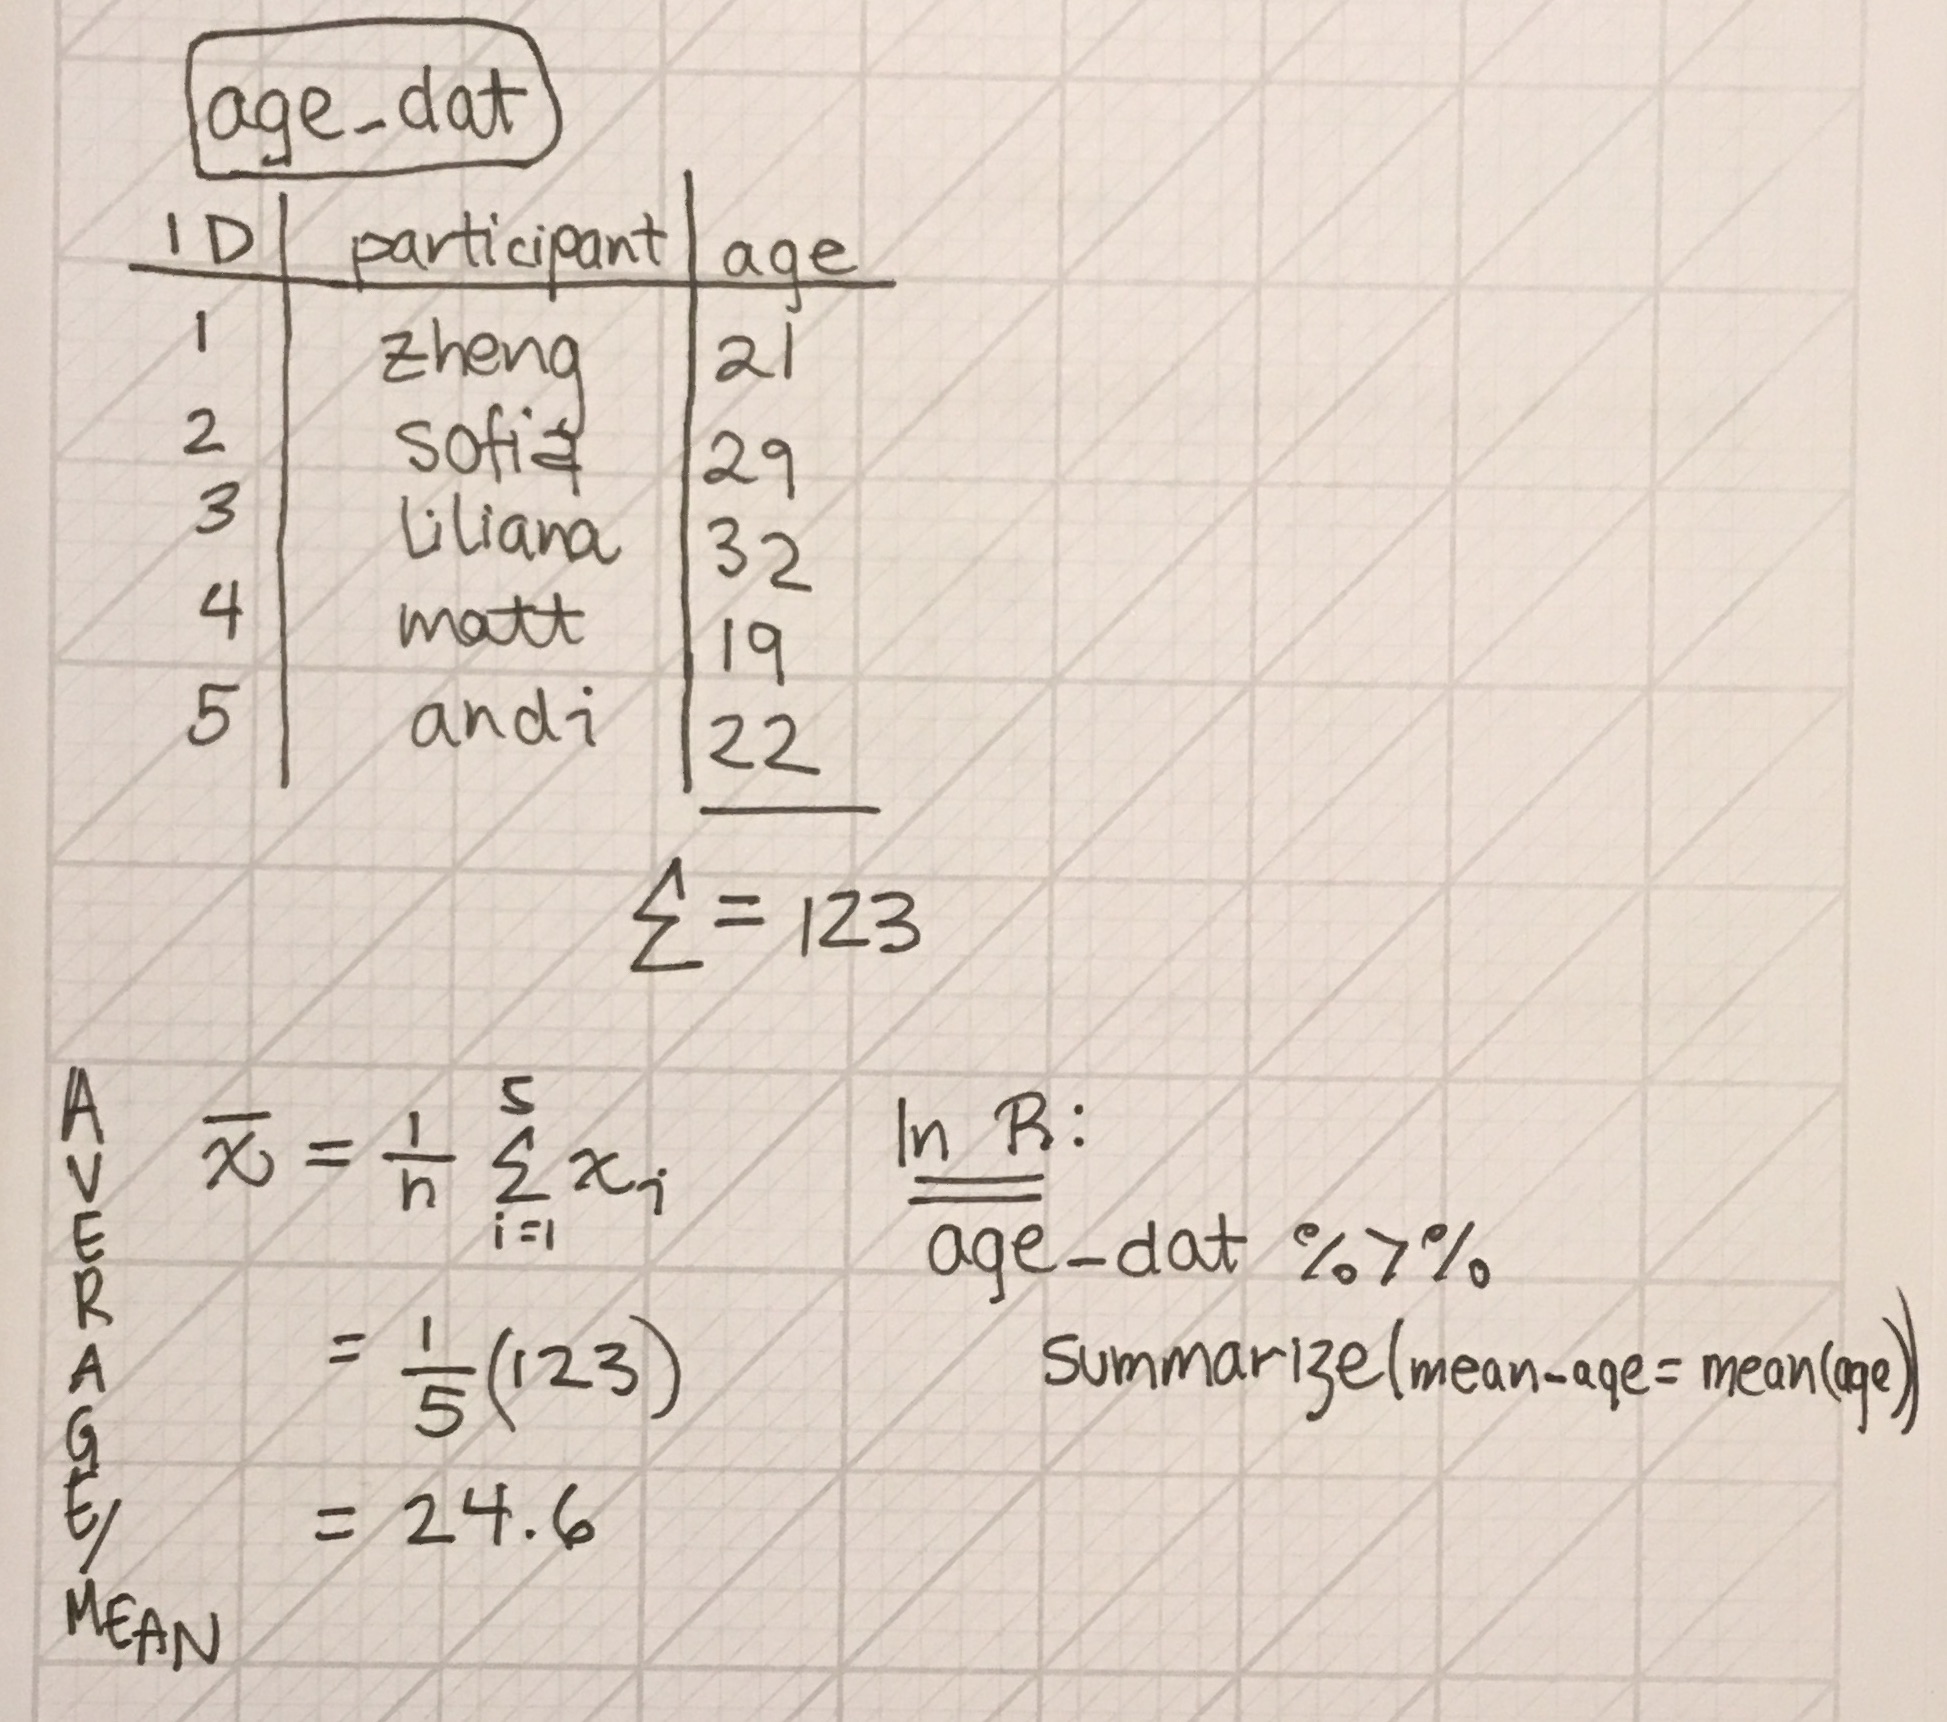 age_dat
ID participant age
1 zheng 21
2 sofia 29
3 liliana 32
4 matt 19
5 andi 22
Σ = 123
AVERAGE/
MEAN
x̄ = 1/n 5 Σ i=1 xi
= 1/5 (123)
= 24.6
In R:
age_dat %>%
summarize(mean_age = mean(age))